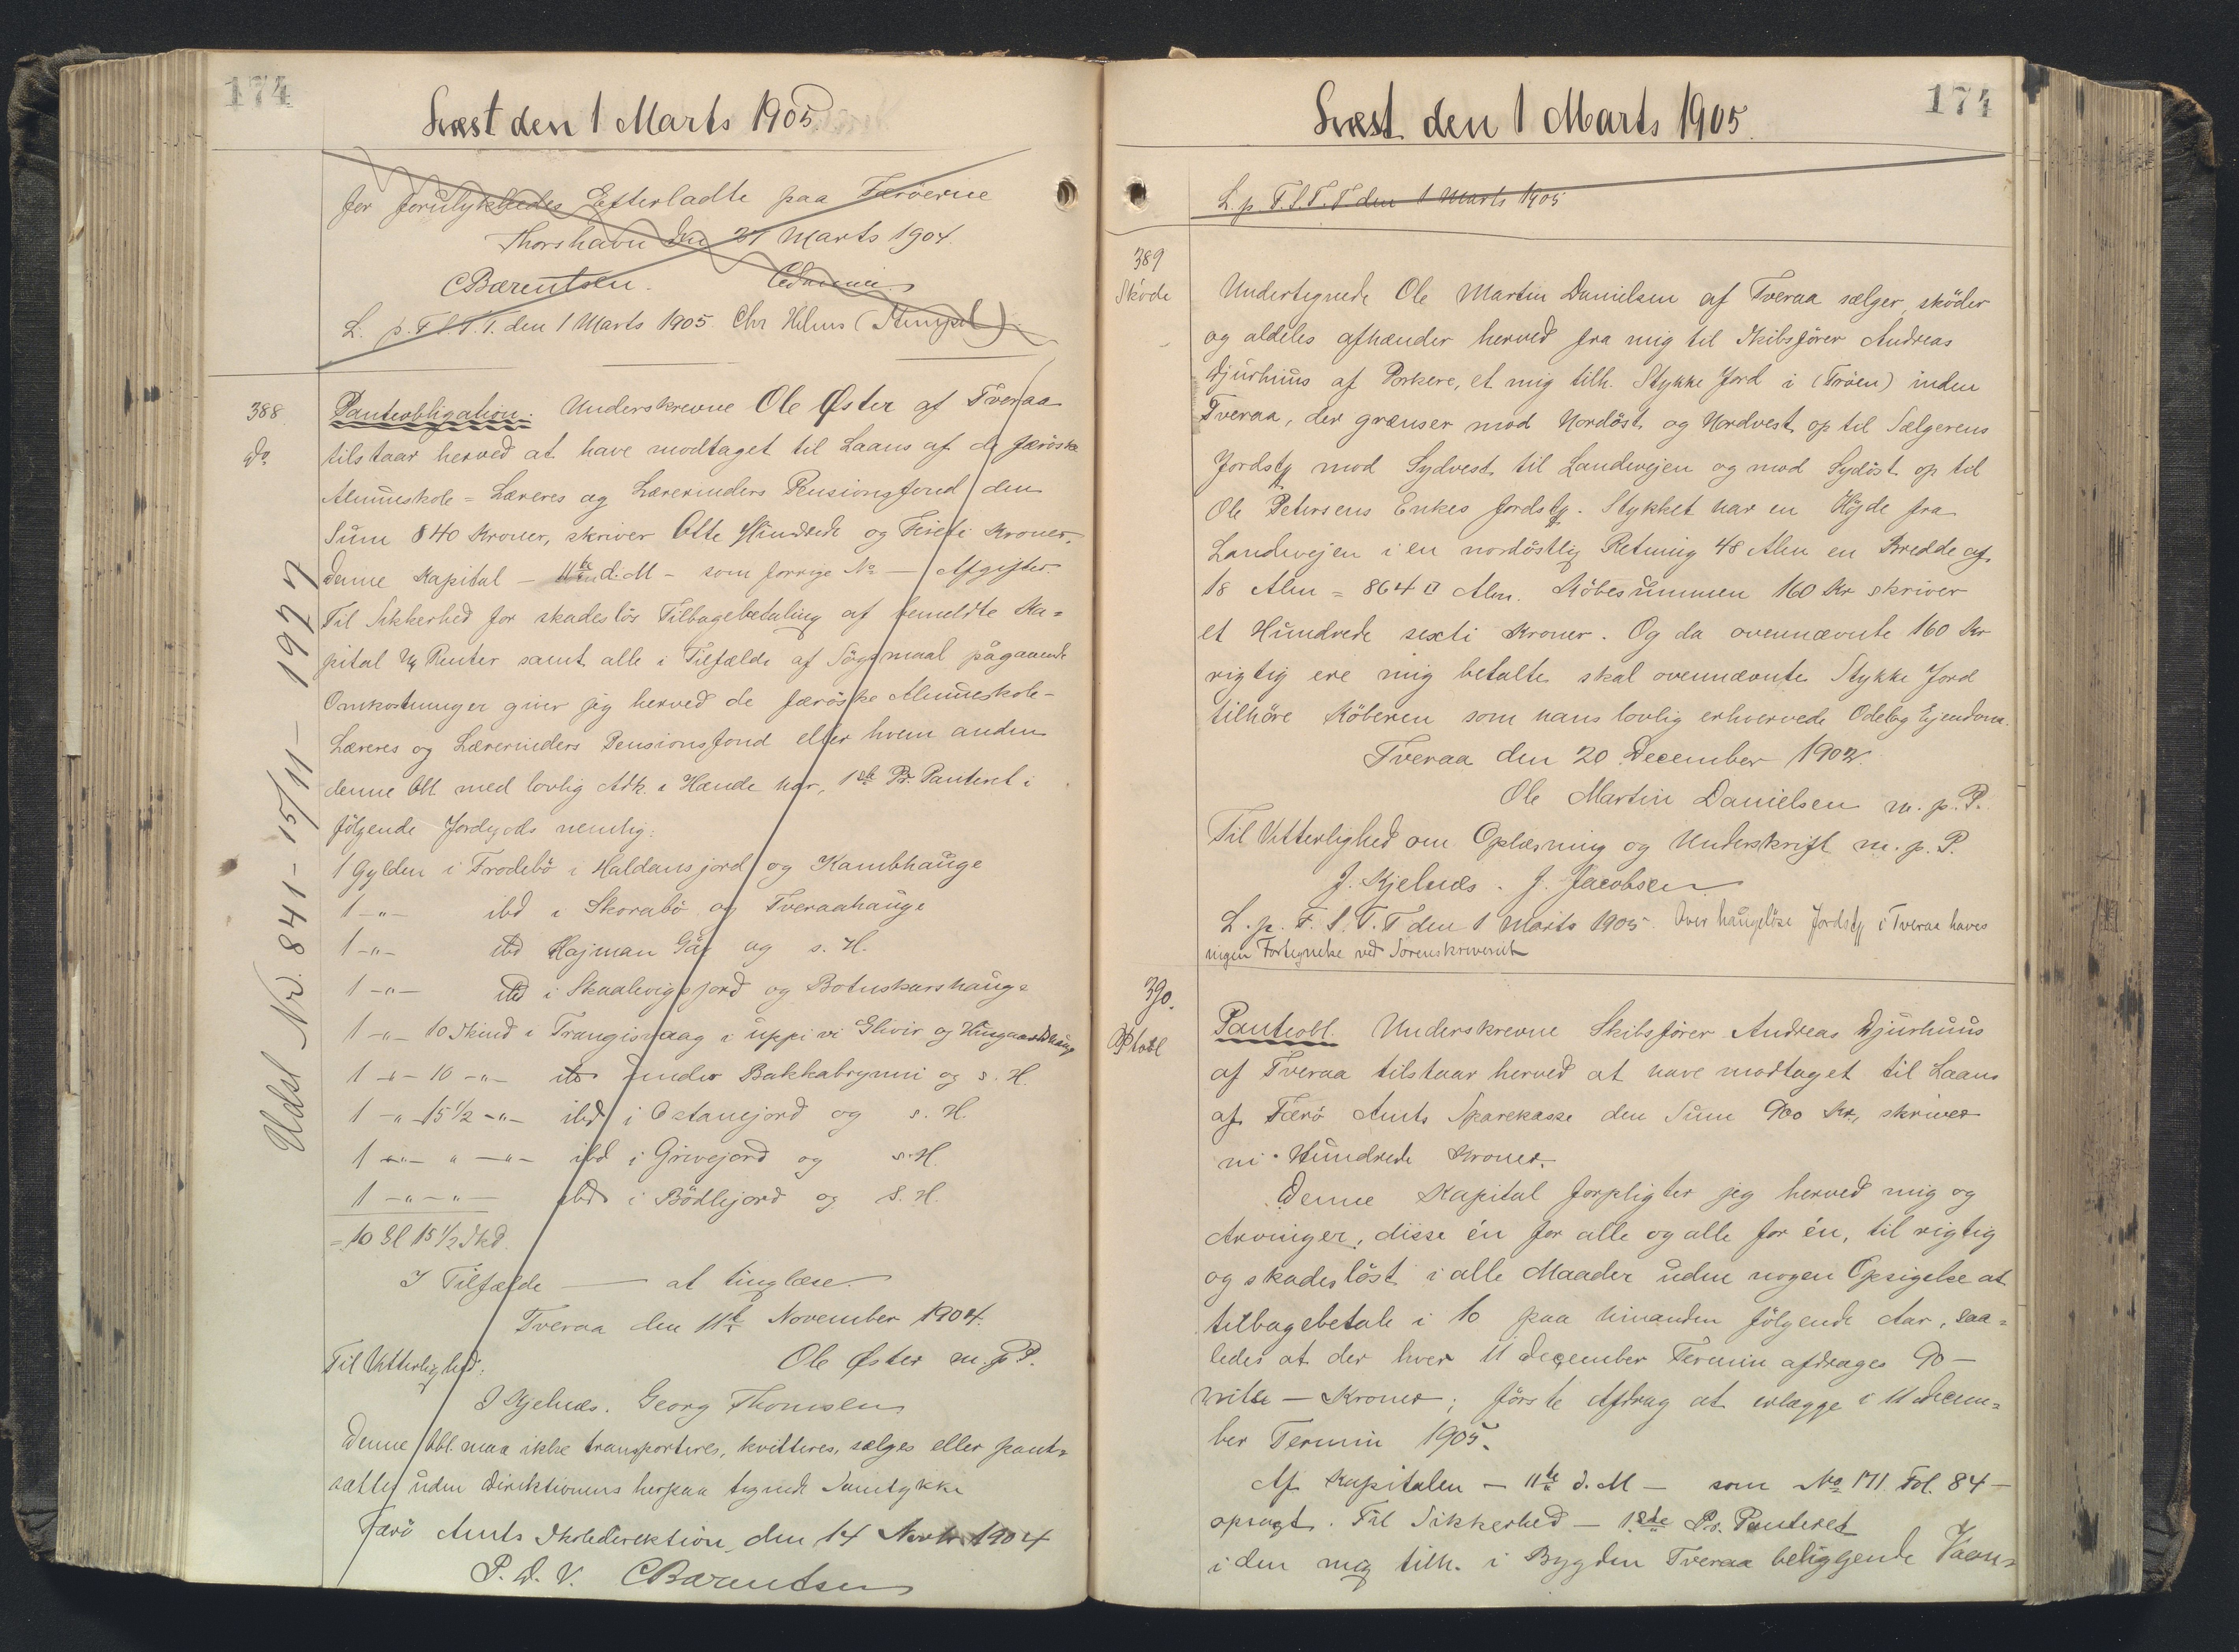 174
Læst den 1 Marts 1905.
for forulykkedes Efterladte paa Færøerne
Thorshavn den 21 Marts 1904.
CBærentsen.
L. p. F. S. T. T. den 1 Marts 1905. Chr Helms (Stempel)
388
do
Udsl No. 841 - 15/11 - 1927
Panteobligation. Underskrevne Ole Øster af Tveraa
tilstaar herved at have modtaget til Laans af de færøske
Almueskole = Læreres og Lærerinders Pensionsfond den
Sum 840 Kroner, skriver Otte Hundrede og Fireti Kroner.
Denne Kapital – 11te d. M – som forrige No – Afgifter
Til Sikkerhed for skadesløs Tilbagebetaling af bemeldte Ka=
pital og Renter samt alle i Tilfælde af Søgsmaal pågaaende
Omkostninger giver jeg herved de færøske Almueskole-
Læreres og Lærerinders Pensionsfond eller hvem anden
denne Obl med lovlig Adk. i Hænde har, 1ste Pr. Panteret i
følgende Jordegods nemlig:
1 Gylden i Frodebö i Haldansjord og Kambhauge
1 -"- ibd i Skorabö og Tveraahauge
1 -"- ibd Hajman Gär og s. H.
1 -"- ibd i Skaalvigsjord og Botnskarshauge
1 -"- 10 Skind i Trangisvaag i uppi vi Glivir og Husgaardshauge
1 -"- 10 -"- ibd under Bakkabrynni og s. H.
1 -"- 15 1/2 -"- ibd i Östanejord og s. H.
1 -"- " -"- ibd i Grivejord og s. H.
1 -"- -"- ibd i Bödlejord og S. H.
= 10 Gl 15 1/2 Skd.
I Tilfælde — at tinglæse.
Tveraa den 11te November 1904.
Til Vitterlighed: Ole Øster m. p. P.
J Kjelnæs. Georg Thomsen
Denne Obl. maa ikke transporteres, kvitteres, sælges eller pant=
sættes uden Direktionens herpaa tegnede Samtykke
Færö Amts Skoledirektion, den 14 Novbr. 1904
P. D. V. CBærentsen
174
Læst den 1 Marts 1905.
L. p. F. S. T. T. den 1 Marts 1905
389
Sköde
Undertegnede Ole Martin Danielsen af Tveraa sælger, sköder
og aldeles afhænder herved fra mig til Skibsfører Andreas
Djurhuus af Porkere, et mig tilh. Stykke Jord i (Tröen) inden
Tveraa, der grænser mod Nordöst og Nordvest op til Sælgerens
Jordstk mod Sydvest til Landevejen og mod Sydöst op til
Ole Petersens Enkes Jordstk. Stykket har en Höjde fra
Landevejen i en nordöstlig Retning 48 Alen en Bredde af
18 Alen = 864 □ Alen. Köbesummen 160 Kr skriver
et Hundrede sexti Kroner. Og da ovennævnte 160 Kr
rigtig ere mig betalte skal ovennævnte Stykke Jord
tilhöre Köberen som hans lovlig erhvervede Odelog Ejendom.
Tveraa den 20 December 1902.
Ole Martin Danielsen m. p. P.
Til Vitterlighed om Oplæsning og Underskrift m. p. P.
J. Kjelnæs. J. Jacobsen
L. p. F. S. T. T den 1 Marts 1905. Over haugelöse Jordstk i Tveraa haves
ingen Fortegnelse ved Sorenskriveriet
390.
Ptobl
Panteobl. Underskrevne Skibsfører Andreas Djurhuus
af Tveraa tilstaar herved at have modtaget til Laans
af Færö Amts Sparekasse den Sum 900 Kr, skriver
ni Hundrede Kroner.
Denne Kapital forpligter jeg herved mig og
Arvinger, disse én for alle og alle for én, til rigtig
og skadeslöst i alle Maader uden nogen Opsigelse at
tilbagebetale i 10 paa hinanden fölgende Aar, saa=
ledes at der hver 11 December Termin afdrages 90 –
nitte – Kroner; förste Afdrag at erlægge i 11 Decem=
ber Termin 1905.
Af Kapitalen – 11te d. M – som No 171 Fol. 84 –
opsagt. Til Sikkerhed – 1ste Pr. Panteret
i den mig tilh. i Bygden Tveraa beliggende Vaan=